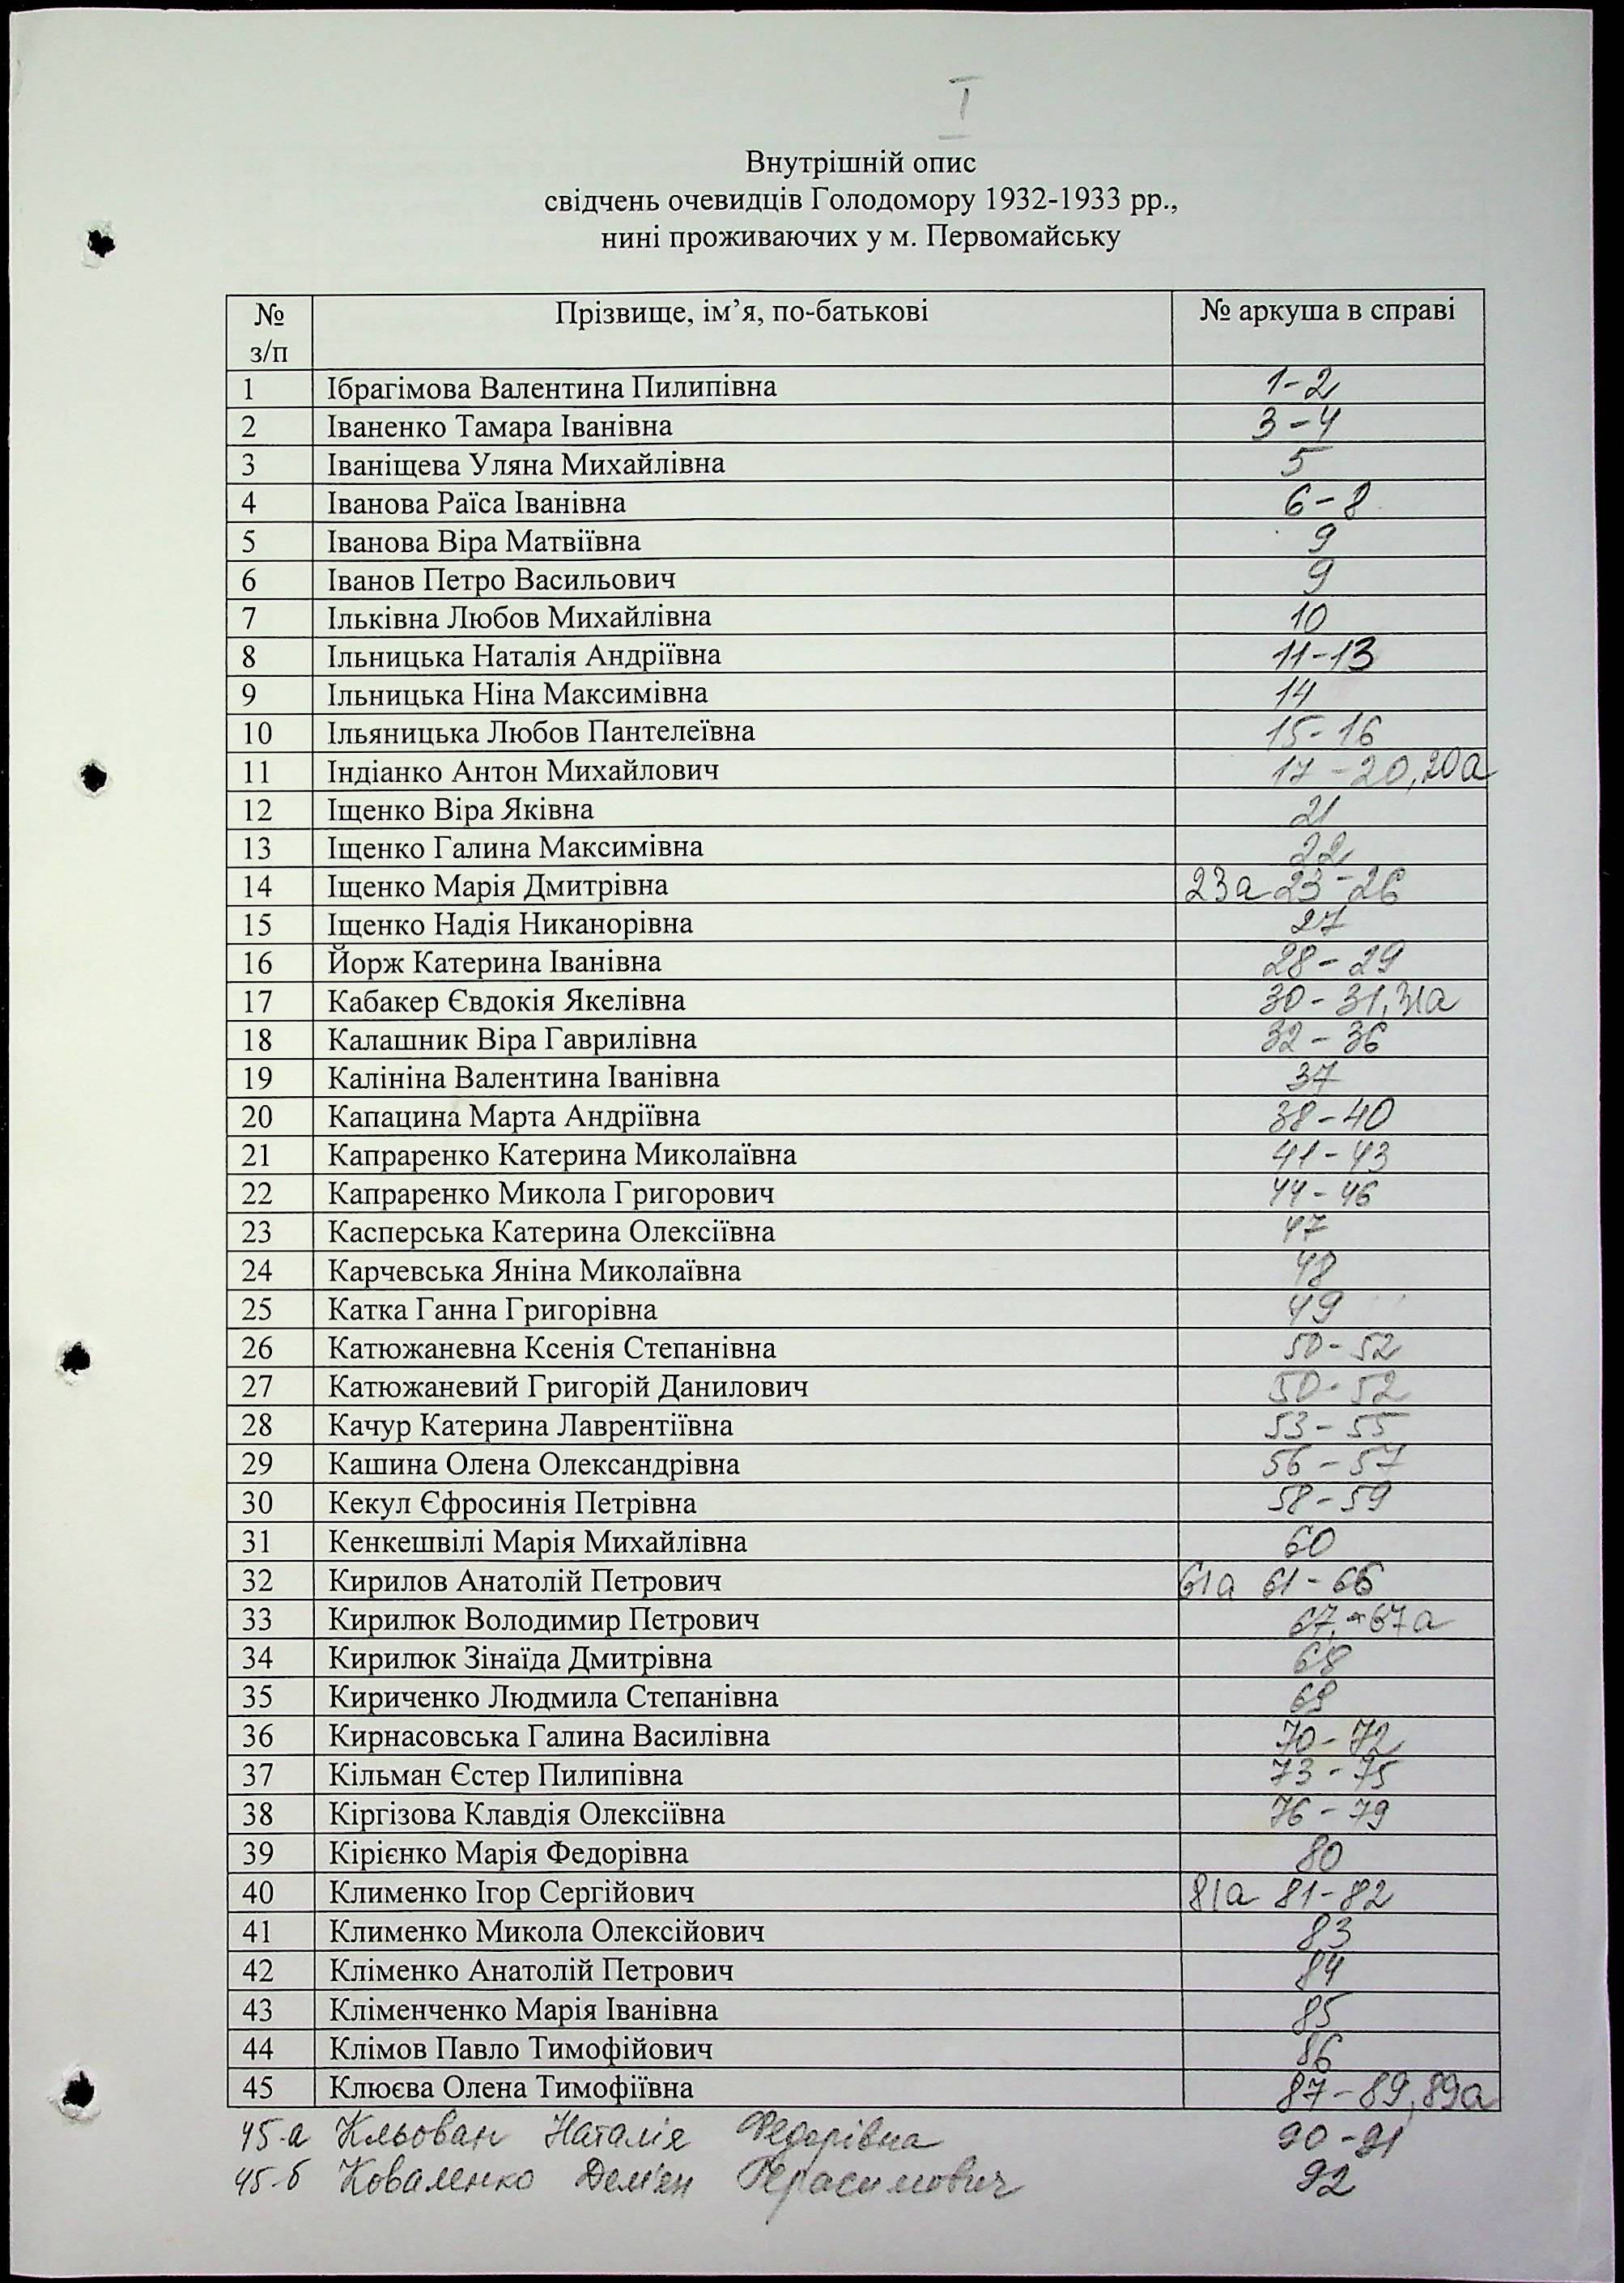 I
Внутрішній опис
свідчень очевидців Голодомору 1932-1933 рр.,
нині проживаючих у м. Первомайську
№ з/п Прізвище, ім’я, по-батькові № аркуша в справі
1 Ібрагімова Валентина Пилипівна 1-2
2 Іваненко Тамара Іванівна 3-4
3 Іваніщева Уляна Михайлівна 5
4 Іванова Раїса Іванівна 6-8
5 Іванова Віра Матвіївна 9
6 Іванов Петро Васильович 9
7 Ільківна Любов Михайлівна 10
8 Ільницька Наталія Андріївна 11-13
9 Ільницька Ніна Максимівна 14
10 Ільяницька Любов Пантелеївна 15-16
11 Індіанко Антон Михайлович 17-20, 20а
12 Іщенко Віра Яківна 21
13 Іщенко Галина Максимівна 22
14 Іщенко Марія Дмитрівна 23а 23-26
15 Іщенко Надія Никанорівна 27
16 Йорж Катерина Іванівна 28-29
17 Кабакер Євдокія Якелівна 30-31, 31а
18 Калашник Віра Гаврилівна 32-36
19 Калініна Валентина Іванівна 37
20 Капацина Марта Андріївна 38-40
21 Капраренко Катерина Миколаївна 41-43
22 Капраренко Микола Григорович 44-46
23 Касперська Катерина Олексіївна 47
24 Карчевська Яніна Миколаївна 48
25 Катка Ганна Григорівна 49
26 Катюжаневна Ксенія Степанівна 50-52
27 Катюжаневий Григорій Данилович 50-52
28 Качур Катерина Лаврентіївна 53-55
29 Кашина Олена Олександрівна 56-57
30 Кекул Єфросинія Петрівна 58-59
31 Кенкешвілі Марія Михайлівна 60
32 Кирилов Анатолій Петрович 61а 61-66
33 Кирилюк Володимир Петрович 67, 67а
34 Кирилюк Зінаїда Дмитрівна 68
35 Кириченко Людмила Степанівна 69
36 Кирнасовська Галина Василівна 70-72
37 Кільман Єстер Пилипівна 73-75
38 Кіргізова Клавдія Олексіївна 76-79
39 Кірієнко Марія Федорівна 80
40 Клименко Ігор Сергійович 81а 81-82
41 Клименко Микола Олексійович 83
42 Кліменко Анатолій Петрович 84
43 Кліменченко Марія Іванівна 85
44 Клімов Павло Тимофійович 86
45 Клюєва Олена Тимофіївна 87-89, 89а
45-а Кльован Наталія Федорівна 90-91
45-б Коваленко Дем'ян Герасимович 92